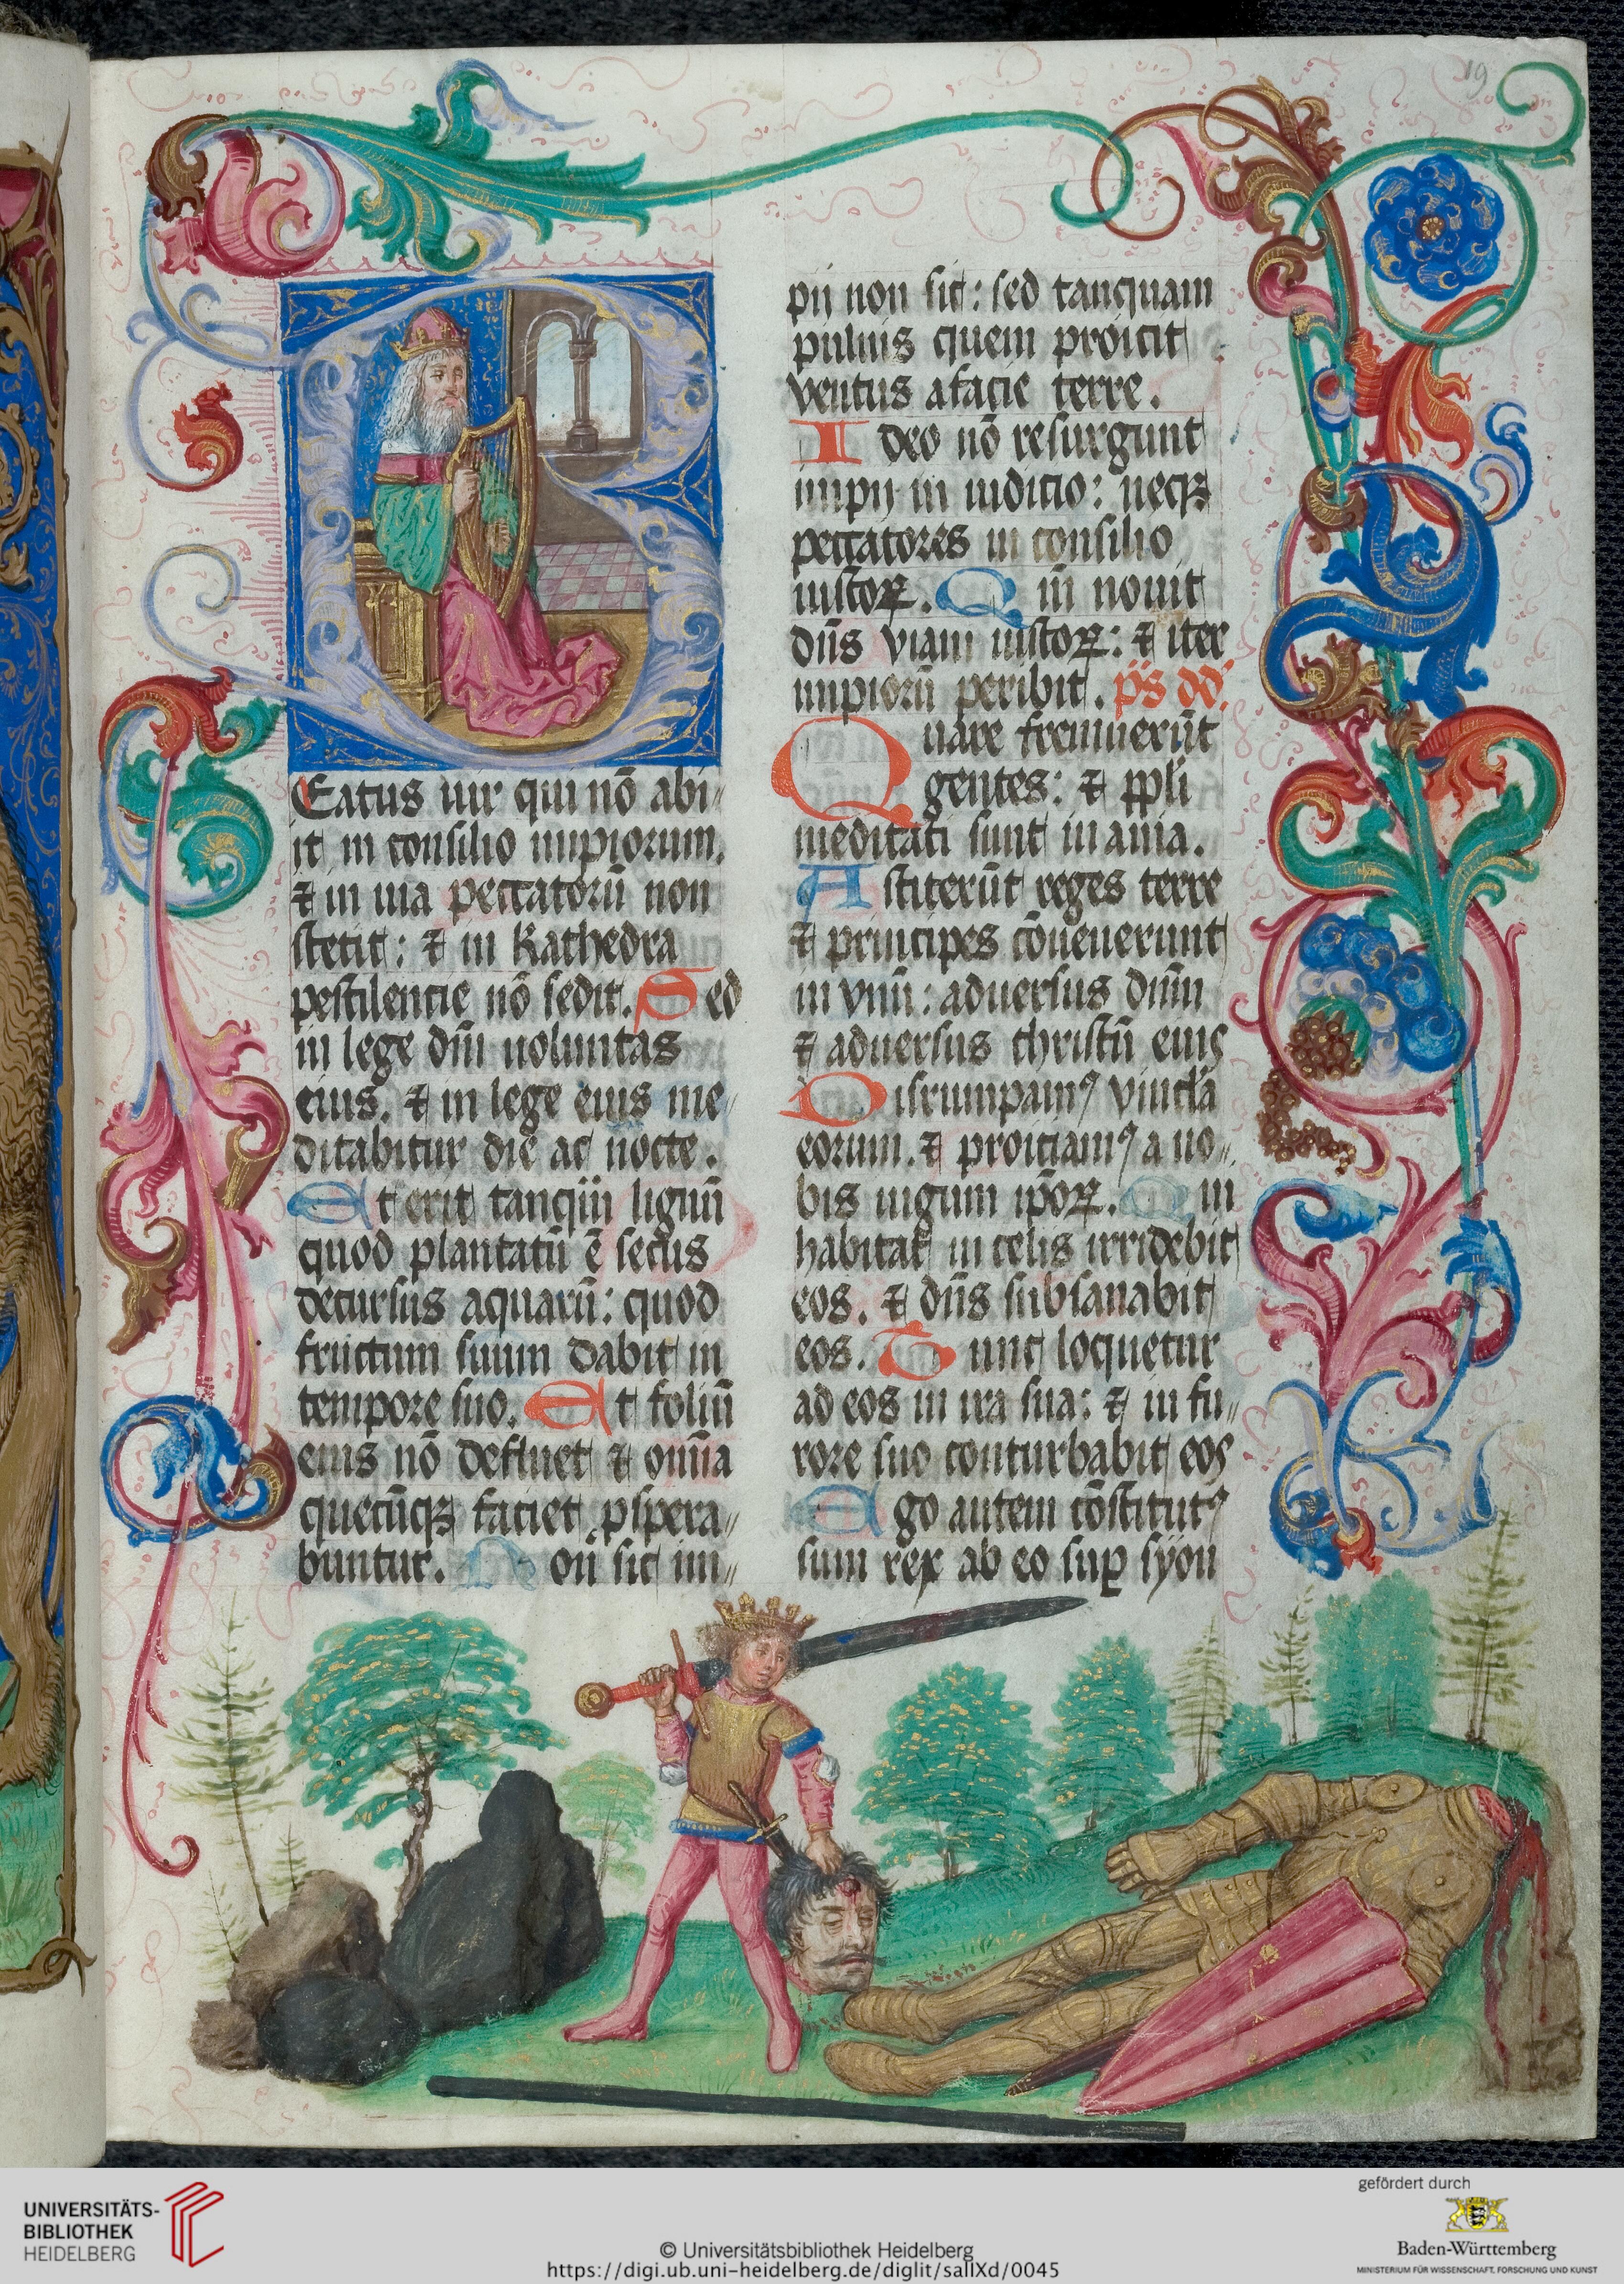 19
BEatus uir qui nō abi„
it in consilio impiorum.
⁊ in uia peccatorū non
stetit : ⁊ in kathedra
pestilencie nō sedit. Sed
in lege dn̄i uoluntas
eius. ⁊ in lege eius me„
ditabitur die ac nocte .
Et erit tanqūi lignū
quod plantatū ē secus
decursus aquarū : quod
fructum suum dabit in
tempore suo. Et foliū
eius nō defluet ⁊ om̄ia
quecūqꝫ faciet pspera„
buntur. Non̄ sic im„
pij non sic : sed tanquam
puluis quem proicit
ventus a facie terre .
Ideo nō resurgunt
impij in iudicio : neqꝫ
peccatores in consilio
iustoꝝ. Qm̄ nouit
dn̄s viam iustoꝝ : ⁊ iter
impiorū peribit . p̄s dd̄.
Quare fremuerūt
gentes : ⁊ ppl̄i
meditati sunt inania .
Astiterūt reges terre
⁊ principes cōuenerunt
in vnū : aduersus dn̄m
⁊ aduersus christū eius
Disrumpamꝰ vincl̄a
eorum. ⁊ proiciamꝰ a no„
bis iugum ip̄oꝝ. Qui
habitat in celis irridebit
eos. ⁊ dn̄s subsanabit
eos. Tunc loquetur
ad eos in ira sua : ⁊ in fu„
rore suo conturbabit eos
Ego autem cōstitutꝰ
sum rex ab eo suꝑ syon
UNIVERSITÄTS-
BIBLIOTHEK
HEIDELBERG
© Universitätsbibliothek Heidelberg
https://digi.ub.uni-heidelberg.de/diglit/salIXd/0045
gefördert durch
Baden-Württemberg
MINISTERIUM FÜR WISSENSCHAFT, FORSCHUNG UND KUNST